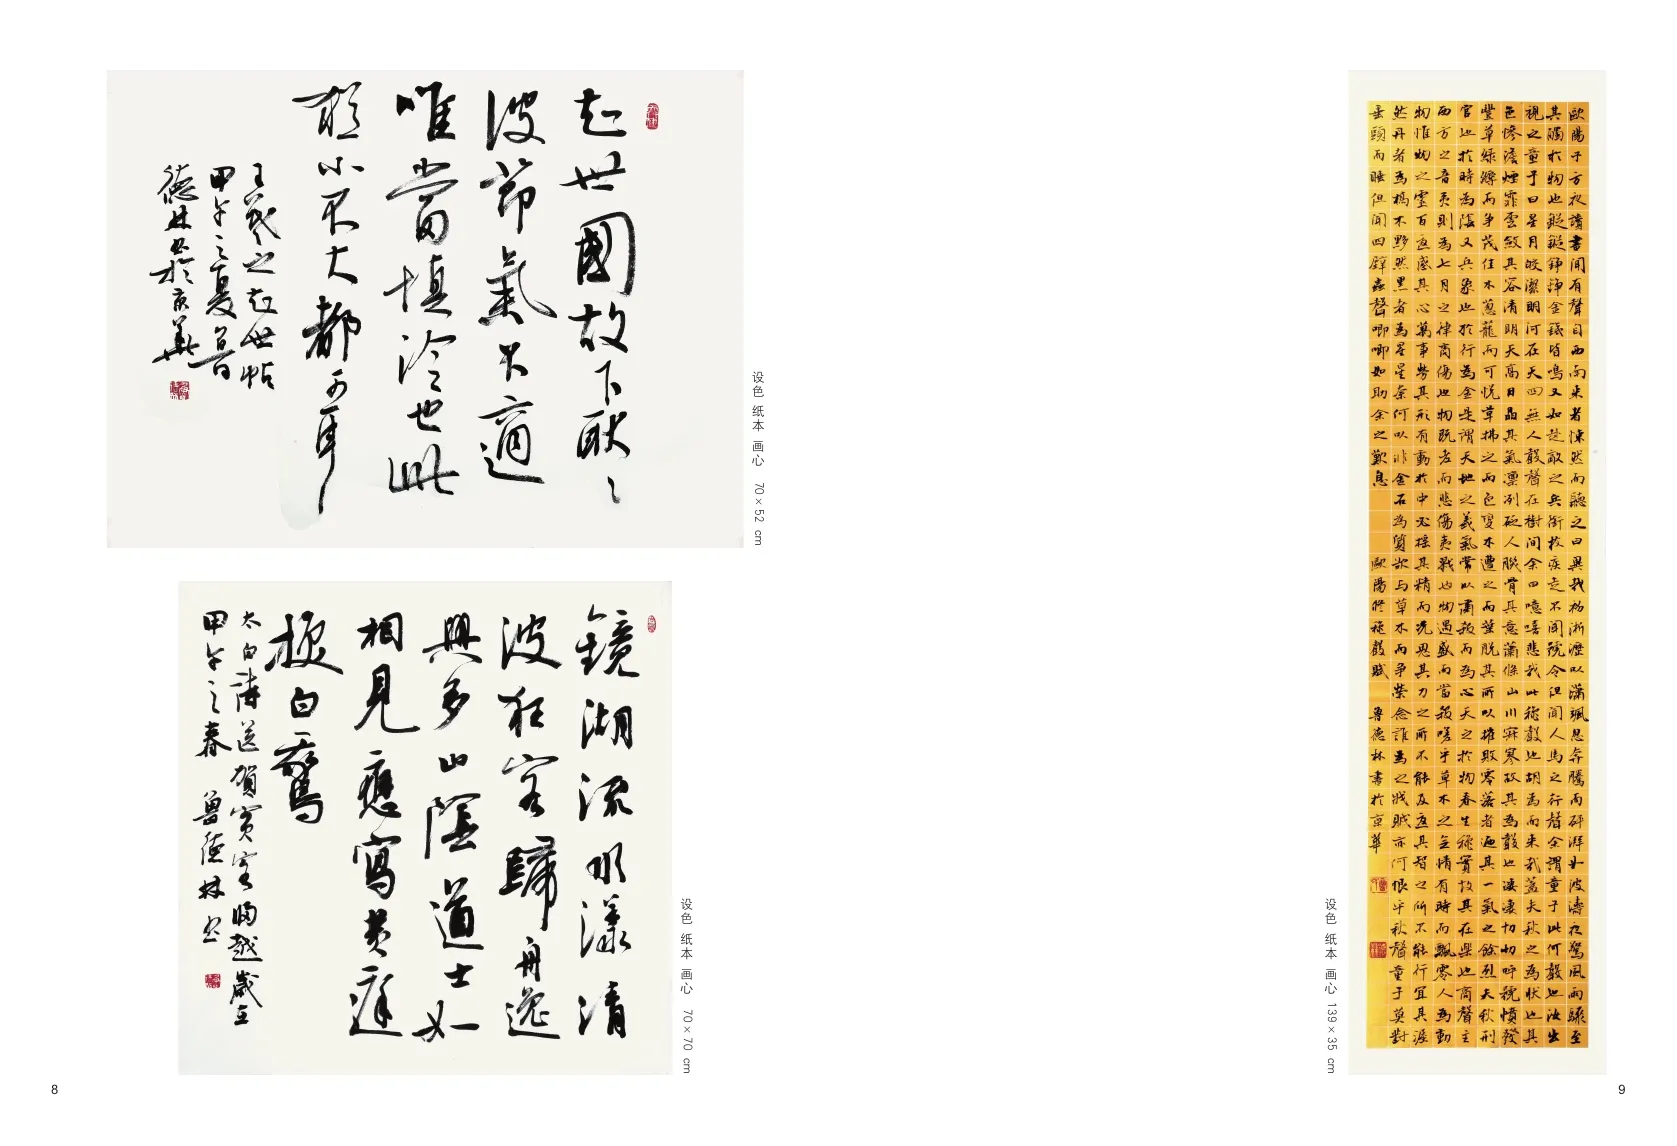 起世國故下耿〻
波節氣不適
唯當慎冷也此
小不大都可耳
王羲之起世帖
甲午之夏魯
德林書於京華
设色 纸本 画心 70×52 cm
鏡湖流水漾清
波狂客歸舟逸
興多山陰道士如
相見應寫黃庭
換白鵝
太白詩送賀賓客歸越 歲在
甲午之春 魯德林書
设色 纸本 画心 70×70 cm
8
歐陽子方夜讀書聞有聲自西南來者悚然而聽之曰異哉初淅瀝以瀟颯忽奔騰而砰湃如波濤夜驚風雨驟至
其觸於物也鏦鏦錚錚金鐵皆鳴又如赴敵之兵銜枚疾走不聞號令但聞人馬之行聲余謂童子此何聲也汝出
視之童子曰星月皎潔明河在天四無人聲聲在樹間余曰噫嘻悲哉此秋聲也胡為而來哉蓋夫秋之為狀也其
色慘澹煙霏雲斂其容清明天高日晶其氣凛冽砭人肌骨其意蕭條山川寂寥故其為聲也淒淒切切呼號憤發
豐草綠縟而爭茂佳木蔥蘢而可悅草拂之而色變木遭之而葉脫其所以摧敗零落者迺其一氣之餘烈夫秋刑
官也於時為陰又兵象也於行為金是謂天地之義氣常以肅殺而為心天之於物春生秋實故其在樂也商聲主
西方之音夷則為七月之律商傷也物既老而悲傷夷戮也物過盛而當殺嗟乎草木之無情有時而飄零人為動
物惟物之靈百憂感其心萬事勞其形有動於中必搖其精而況思其力之所不能及憂其智之所不能行宜其渥
然丹者為槁木黟然黑者為星星奈何以非金石為質欲與草木而爭榮念誰為之戕賊亦何恨乎秋聲童子莫對
垂頭而睡但聞四壁蟲聲唧唧如助余之歎息 歐陽修秋聲賦 魯德林書於京華
设色 纸本 画心 139×35 cm
9